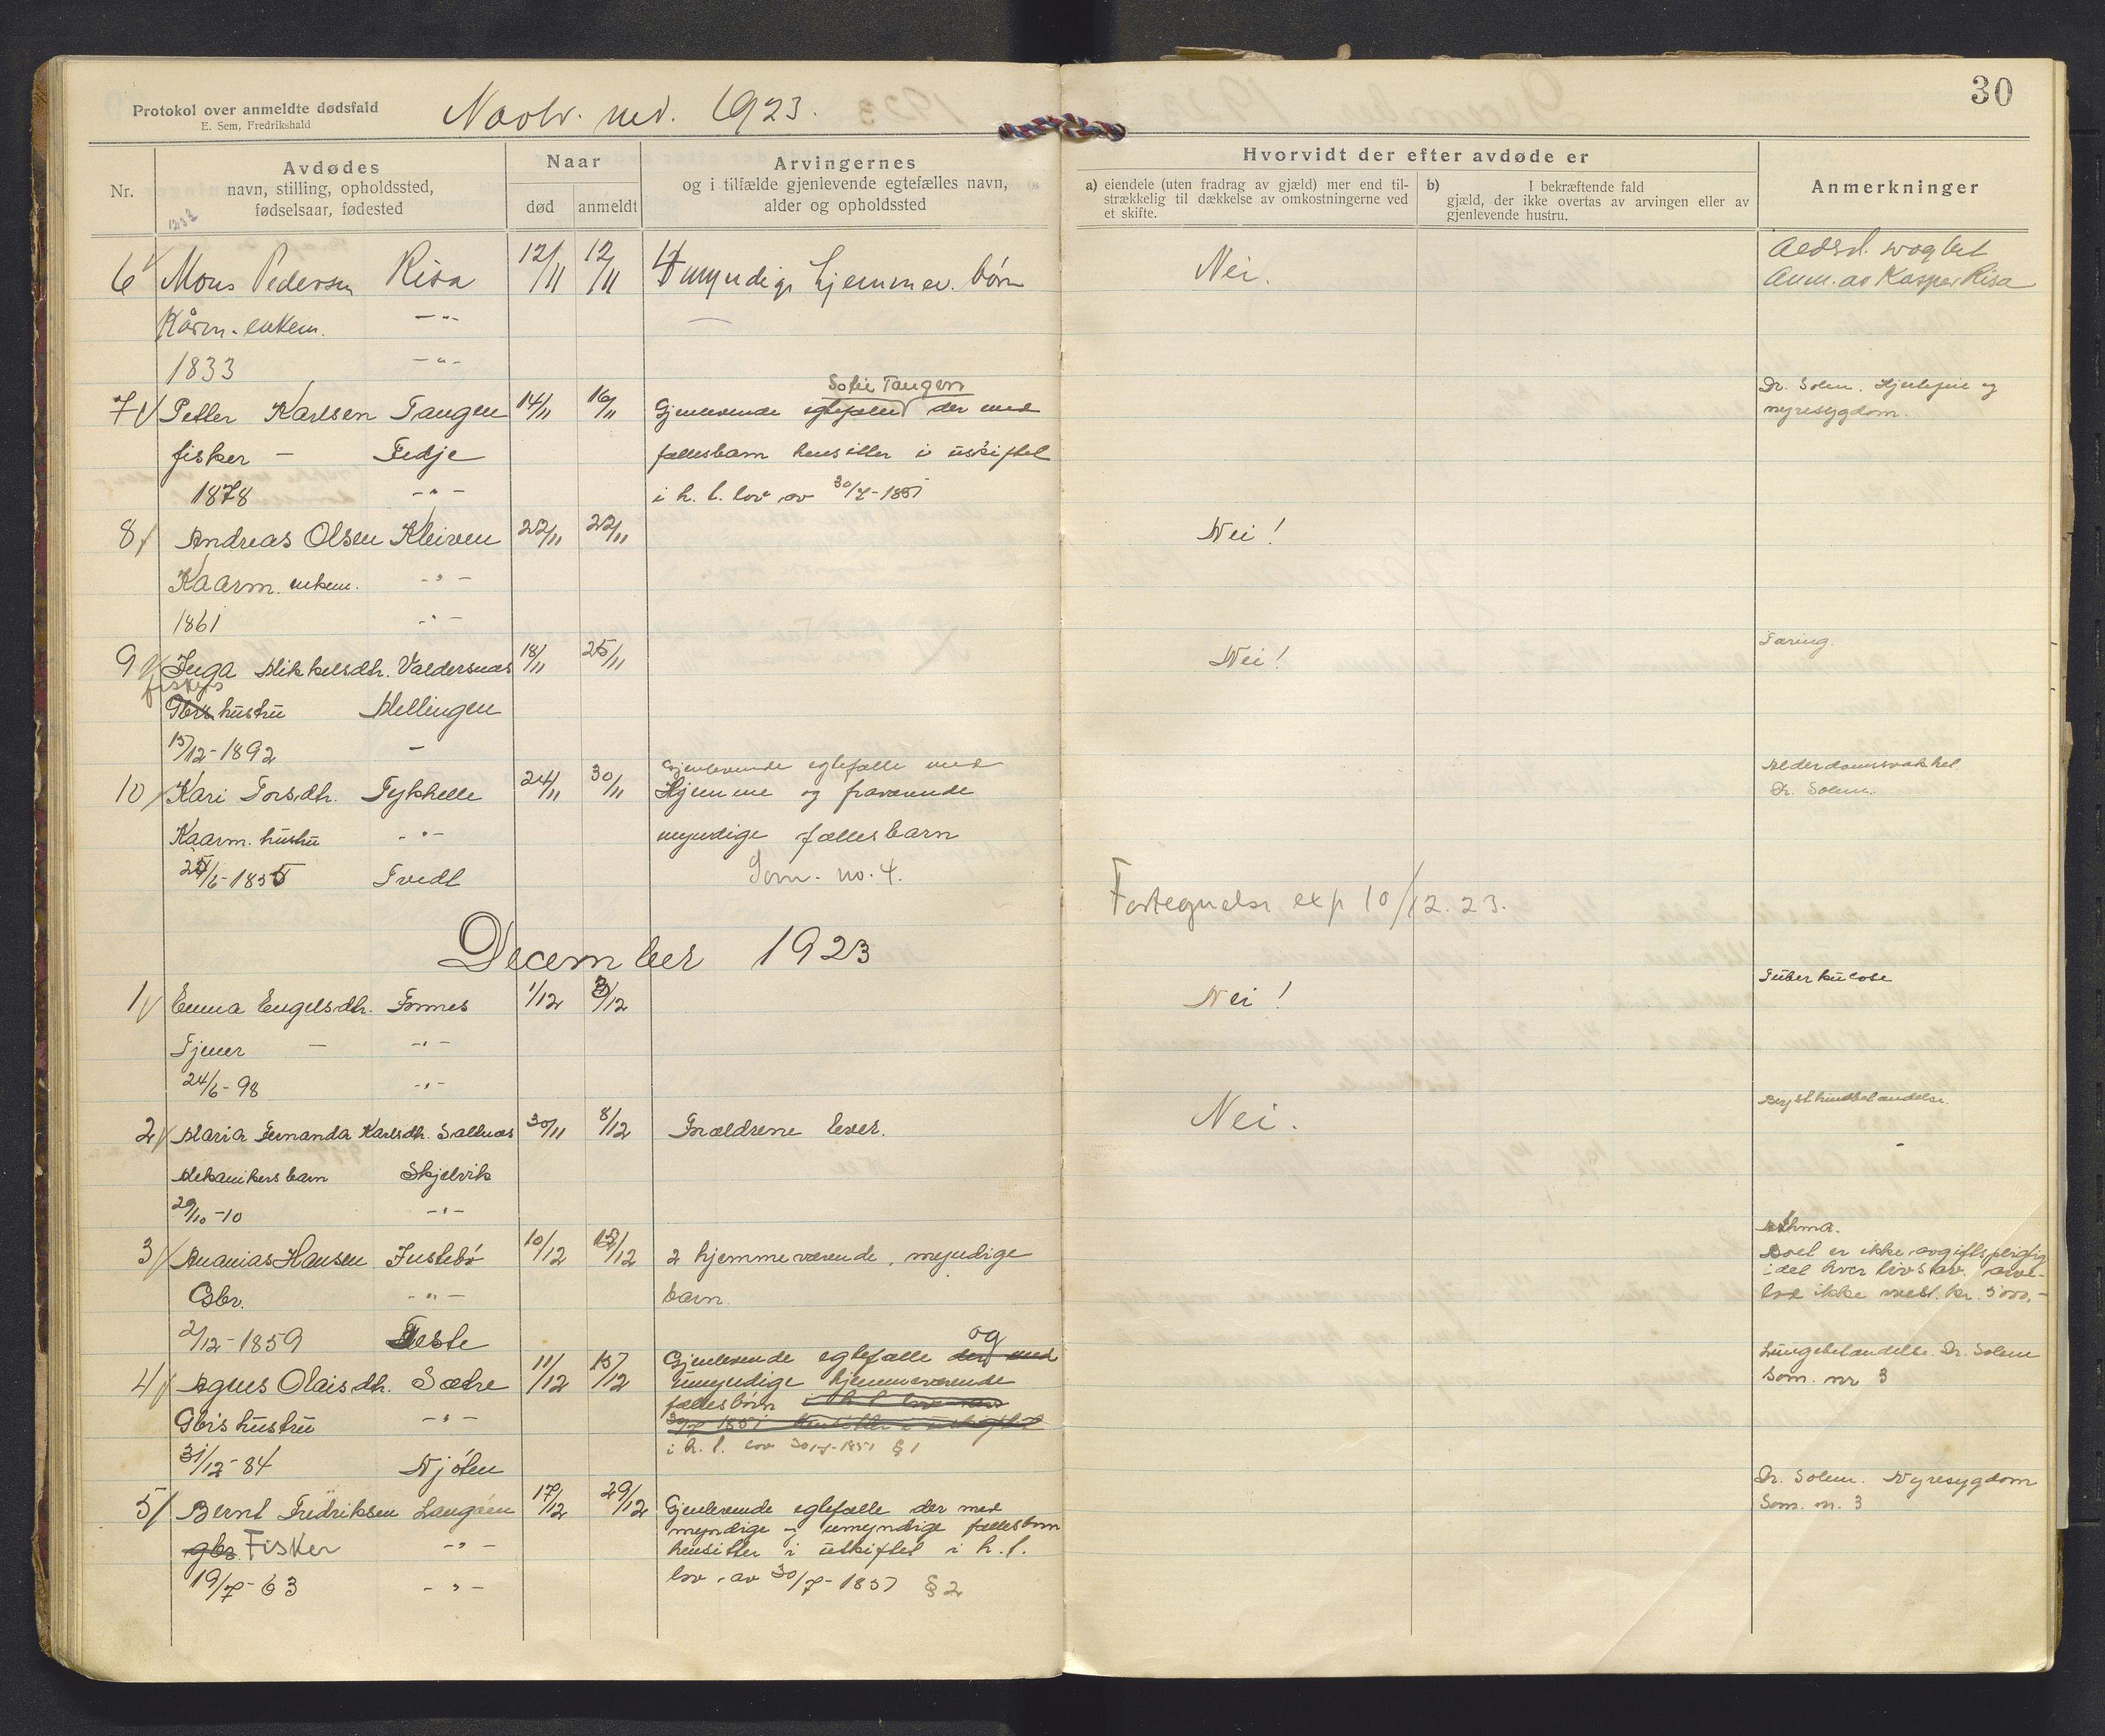 30
Protokol over anmeldte dødsfald
E. Sem, Fredrikshald
Novbr. md. 1923.
Nr.
Avdødes
navn, stilling, opholdssted,
fødselsaar, fødested
Naar
død
anmeldt
Arvingernes
og i tilfælde gjenlevende egtefælles navn,
alder og opholdssted
Hvorvidt der efter avdøde er
a) eiendele (uten fradrag av gjæld) mer end til-
strækkelig til dækkelse av omkostningerne ved
et skifte.
b) I bekræftende fald
gjæld, der ikke overtas av arvingen eller av
gjenlevende hustru.
Anmerkninger
6 Mons Pedersen Risa 12/11 12/11 4 myndige hjemmev. børn Nei. Aldrd. svaghet
Anm. av Kasper Risa
Kårm. enkem. - " -
1833 - " -
7 Petter Karlsen Tangen 14/11 16/11 Gjenlevende egtefælle Sofie Tangen der med Dr. Solem. Hjertefeil og
nyresygdom.
fisker - Fedje fællesbarn hensitter i uskiftet
1878 - " - i h. t. lov av 30/7-1851
8 Andreas Olsen Kleiven 22/11 22/11 Nei!
Kaarm. enkem. - " -
1861 - " -
9 Inga Mikkelsdtr. Valdersnæs 18/11 25/11 Nei! Tæring.
fiskers
Gbrs hustru Mellingen
15/12-1892 -
10 Kari Torsdtr. Tykhelle 24/11 30/11 Gjenlevende egtefælle med Alderdomssvakhet
Hjemme og fraværende Dr. Solem.
Kaarm. hustru - " - myndige fællesbarn
25/6-1855 Tvedt Som no. 4.
Fortegnelse exp 10/12. 23.
December 1923
1 Emma Engelsdtr. Fonnes 1/12 3/12 Nei! Tuberkulose
Tjener - - " -
24/6-98 - " -
2 Maria Fernanda Karlsdtr. Saltnæs 30/11 8/12 Forældrene lever. Nei. Brysthindebetændelse.
Mekanikers barn Skjelvik
29/10-10 - " -
3 Ananias Hansen Justebø 10/12 12/12 2 hjemmeværende, myndige Asthma.
Boet er ikke avgiftspligtig
idet hver livsarv. arve-
lod ikke
Gbr. - " - barn.
2/12-1859
4 Agnes Olaisdtr. Sætre 11/12 15/12 Gjenlevende egtefælle der med og Lungebetændelse. Dr. Solem
umyndige hjemmeværende Som. nr 3
Gbrs hustru - " - fællesbørn i h. t. lov av
30/7 1851 hensitter i uskiftet
i h. t. lov 30/7-1851 § 1
31/12-84 Njøten
5 Bernt Fredriksen Langøen 17/12 29/12 Gjenlevende egtefælle der med Dr. Solem. Nyresygdom
myndige og umyndige fællesbarn Som. nr. 3
gbr. Fisker - " - hensitter i uskiftet i h. t.
19/7-63 - " - lov av 30/7-1851 § 2